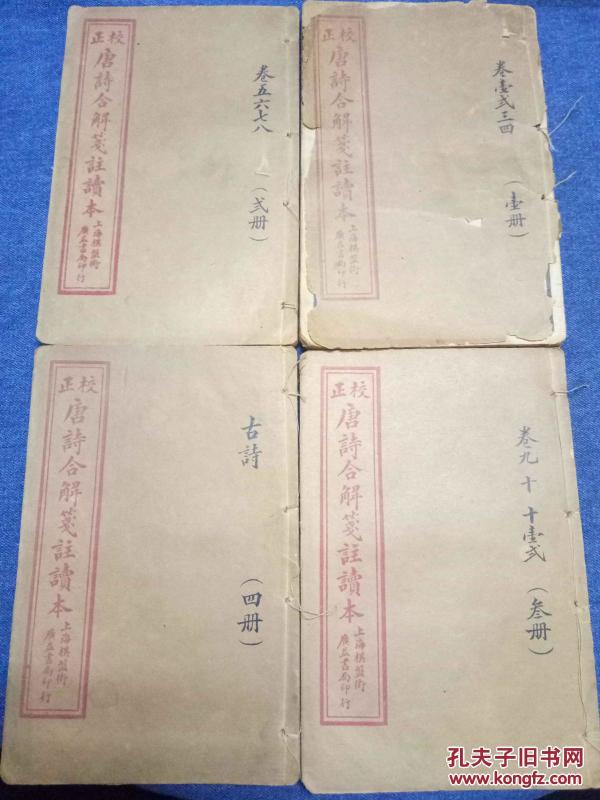 校正
唐詩合解箋註讀本
上海棋盤街
廣益書局印行
卷壹弍三四
(壹册)
校正
唐詩合解箋註讀本
上海棋盤街
廣益書局印行
卷五六七八
(弍册)
校正
唐詩合解箋註讀本
上海棋盤街
廣益書局印行
卷九 十 十壹弍
(叁册)
校正
唐詩合解箋註讀本
上海棋盤街
廣益書局印行
古詩
(四册)
孔夫子旧书网
www.kongfz.com